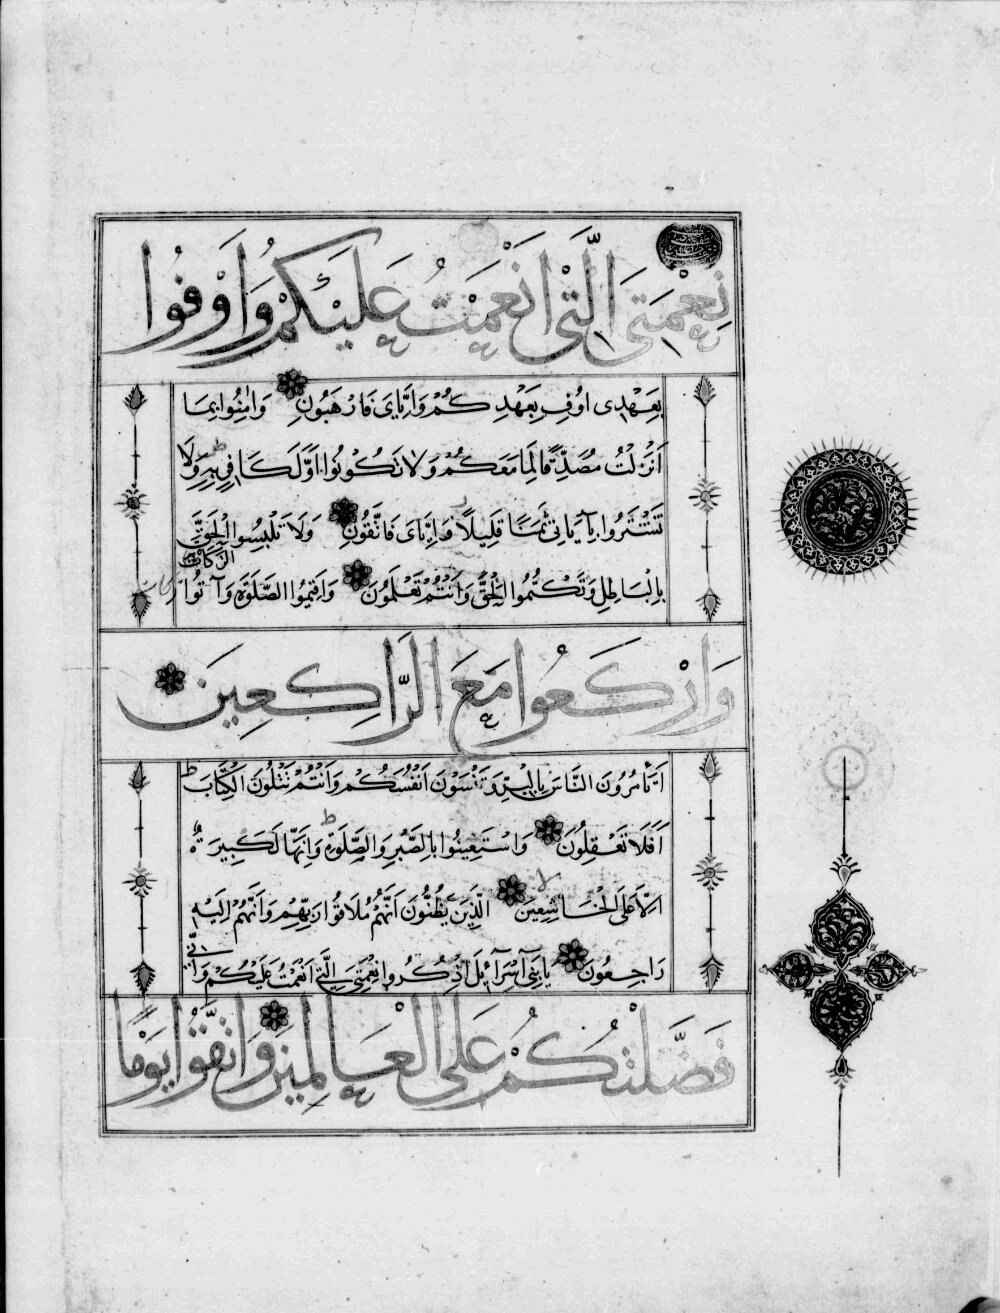 نِعْمَتِيَ الَّتِي اَنْعَمْتُ عَلَيْكُمْ وَاَوْفُوا
بِعَهْدِى اُوفِ بِعَهْدِكُمْ وَاِيَّاىَ فَارْهَبُونِ وَاٰمِنُوا بِمَا
اَنْزَلْتُ مُصَدِّقًا لِمَا مَعَكُمْ وَلَا تَكُونُوا اَوَّلَ كَافِرٍ بِهِ وَلَا
تَشْتَرُوا بِآيَاتِى ثَمَنًا قَلِيلًا وَاِيَّاىَ فَاتَّقُونِ وَلَا تَلْبِسُوا الْحَقَّ
بِالْبَاطِلِ وَتَكْتُمُوا الْحَقَّ وَاَنْتُمْ تَعْلَمُونَ وَاَقِيمُوا الصَّلَوةَ وَآتُوا
الزَّكَاةَ
وَارْكَعُوا مَعَ الرَّاكِعِينَ
اَتَأْمُرُونَ النَّاسَ بِالْبِرِّ وَتَنْسَوْنَ اَنْفُسَكُمْ وَاَنْتُمْ تَتْلُونَ الْكِتَابَ
اَفَلَا تَعْقِلُونَ وَاسْتَعِينُوا بِالصَّبْرِ وَالصَّلَوةِ وَاِنَّهَا لَكَبِيرَةٌ
اِلَّا عَلَى الْخَاشِعِينَ الَّذِينَ يَظُنُّونَ اَنَّهُمْ مُلَاقُوا رَبِّهِمْ وَاَنَّهُمْ اِلَيْهِ
رَاجِعُونَ يَا بَنِى آسْرَآئِيلَ اذْكُرُوا نِعْمَتِيَ الَّتِى اَنْعَمْتُ عَلَيْكُمْ وَاَنِّى
فَضَّلْتُكُمْ عَلَى الْعَالَمِينَ وَاتَّقُوا يَوْمًا